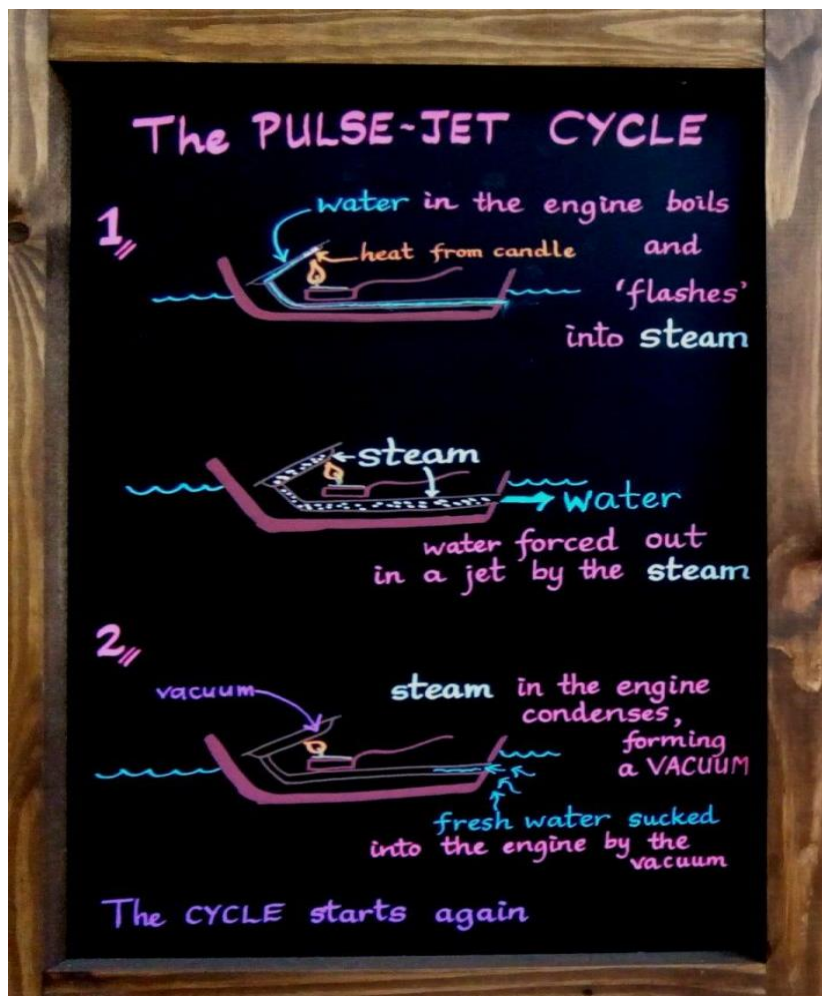 The PULSE-JET CYCLE
1
water in the engine boils
heat from candle
and
'flashes'
into steam
steam
water
water forced out
in a jet by the steam
2
vacuum
steam in the engine
condenses,
forming
a VACUUM
fresh water sucked
into the engine by the
vacuum
The CYCLE starts again